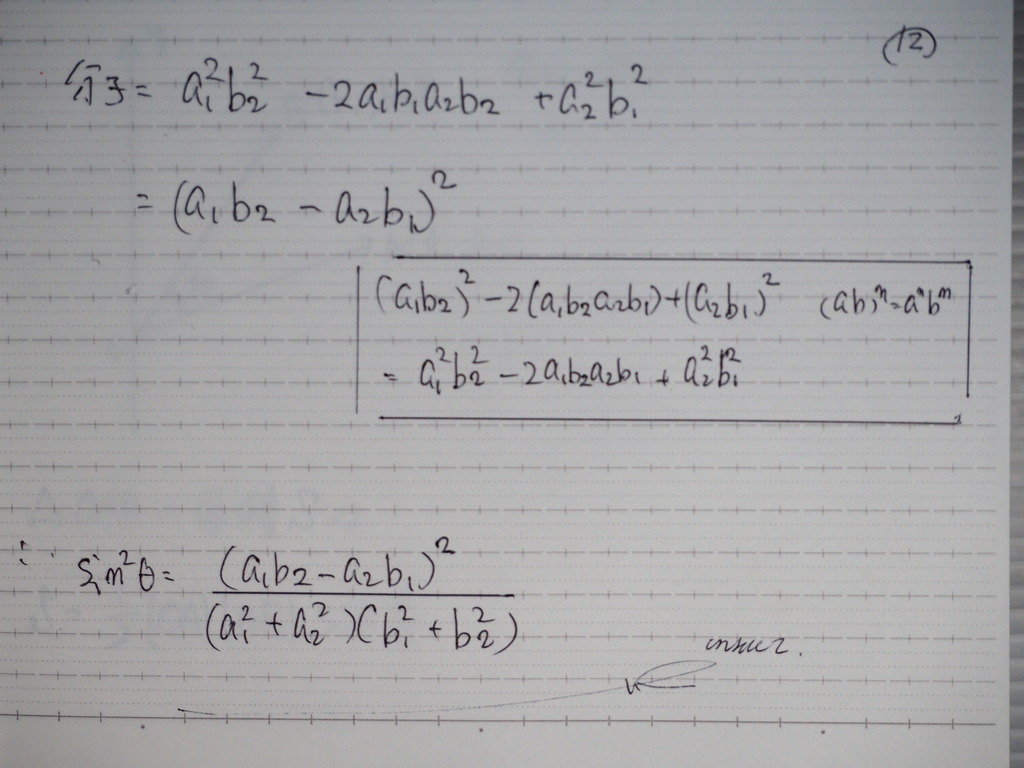 (12)
分子 = a₁²b₂² - 2a₁b₁a₂b₂ + a₂²b₁²
= (a₁b₂ - a₂b₁)²
(a₁b₂)² - 2(a₁b₂a₂b₁) + (a₂b₁)² (ab)ⁿ = aⁿbⁿ
= a₁²b₂² - 2a₁b₂a₂b₁ + a₂²b₁²
∴ sin²θ = (a₁b₂ - a₂b₁)² / (a₁² + a₂²)(b₁² + b₂²)